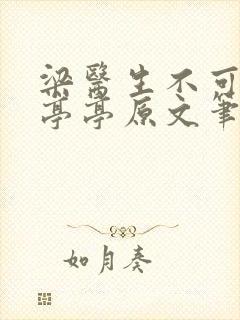 梁醫生不可
亭亭原文筆
如月奏